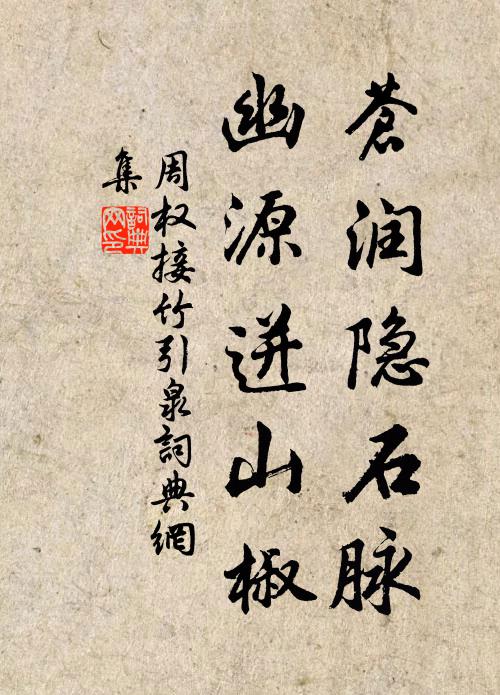 苍润隐石脉
幽源迸山椒
周权接竹引泉詞典網
集
詞典
网印